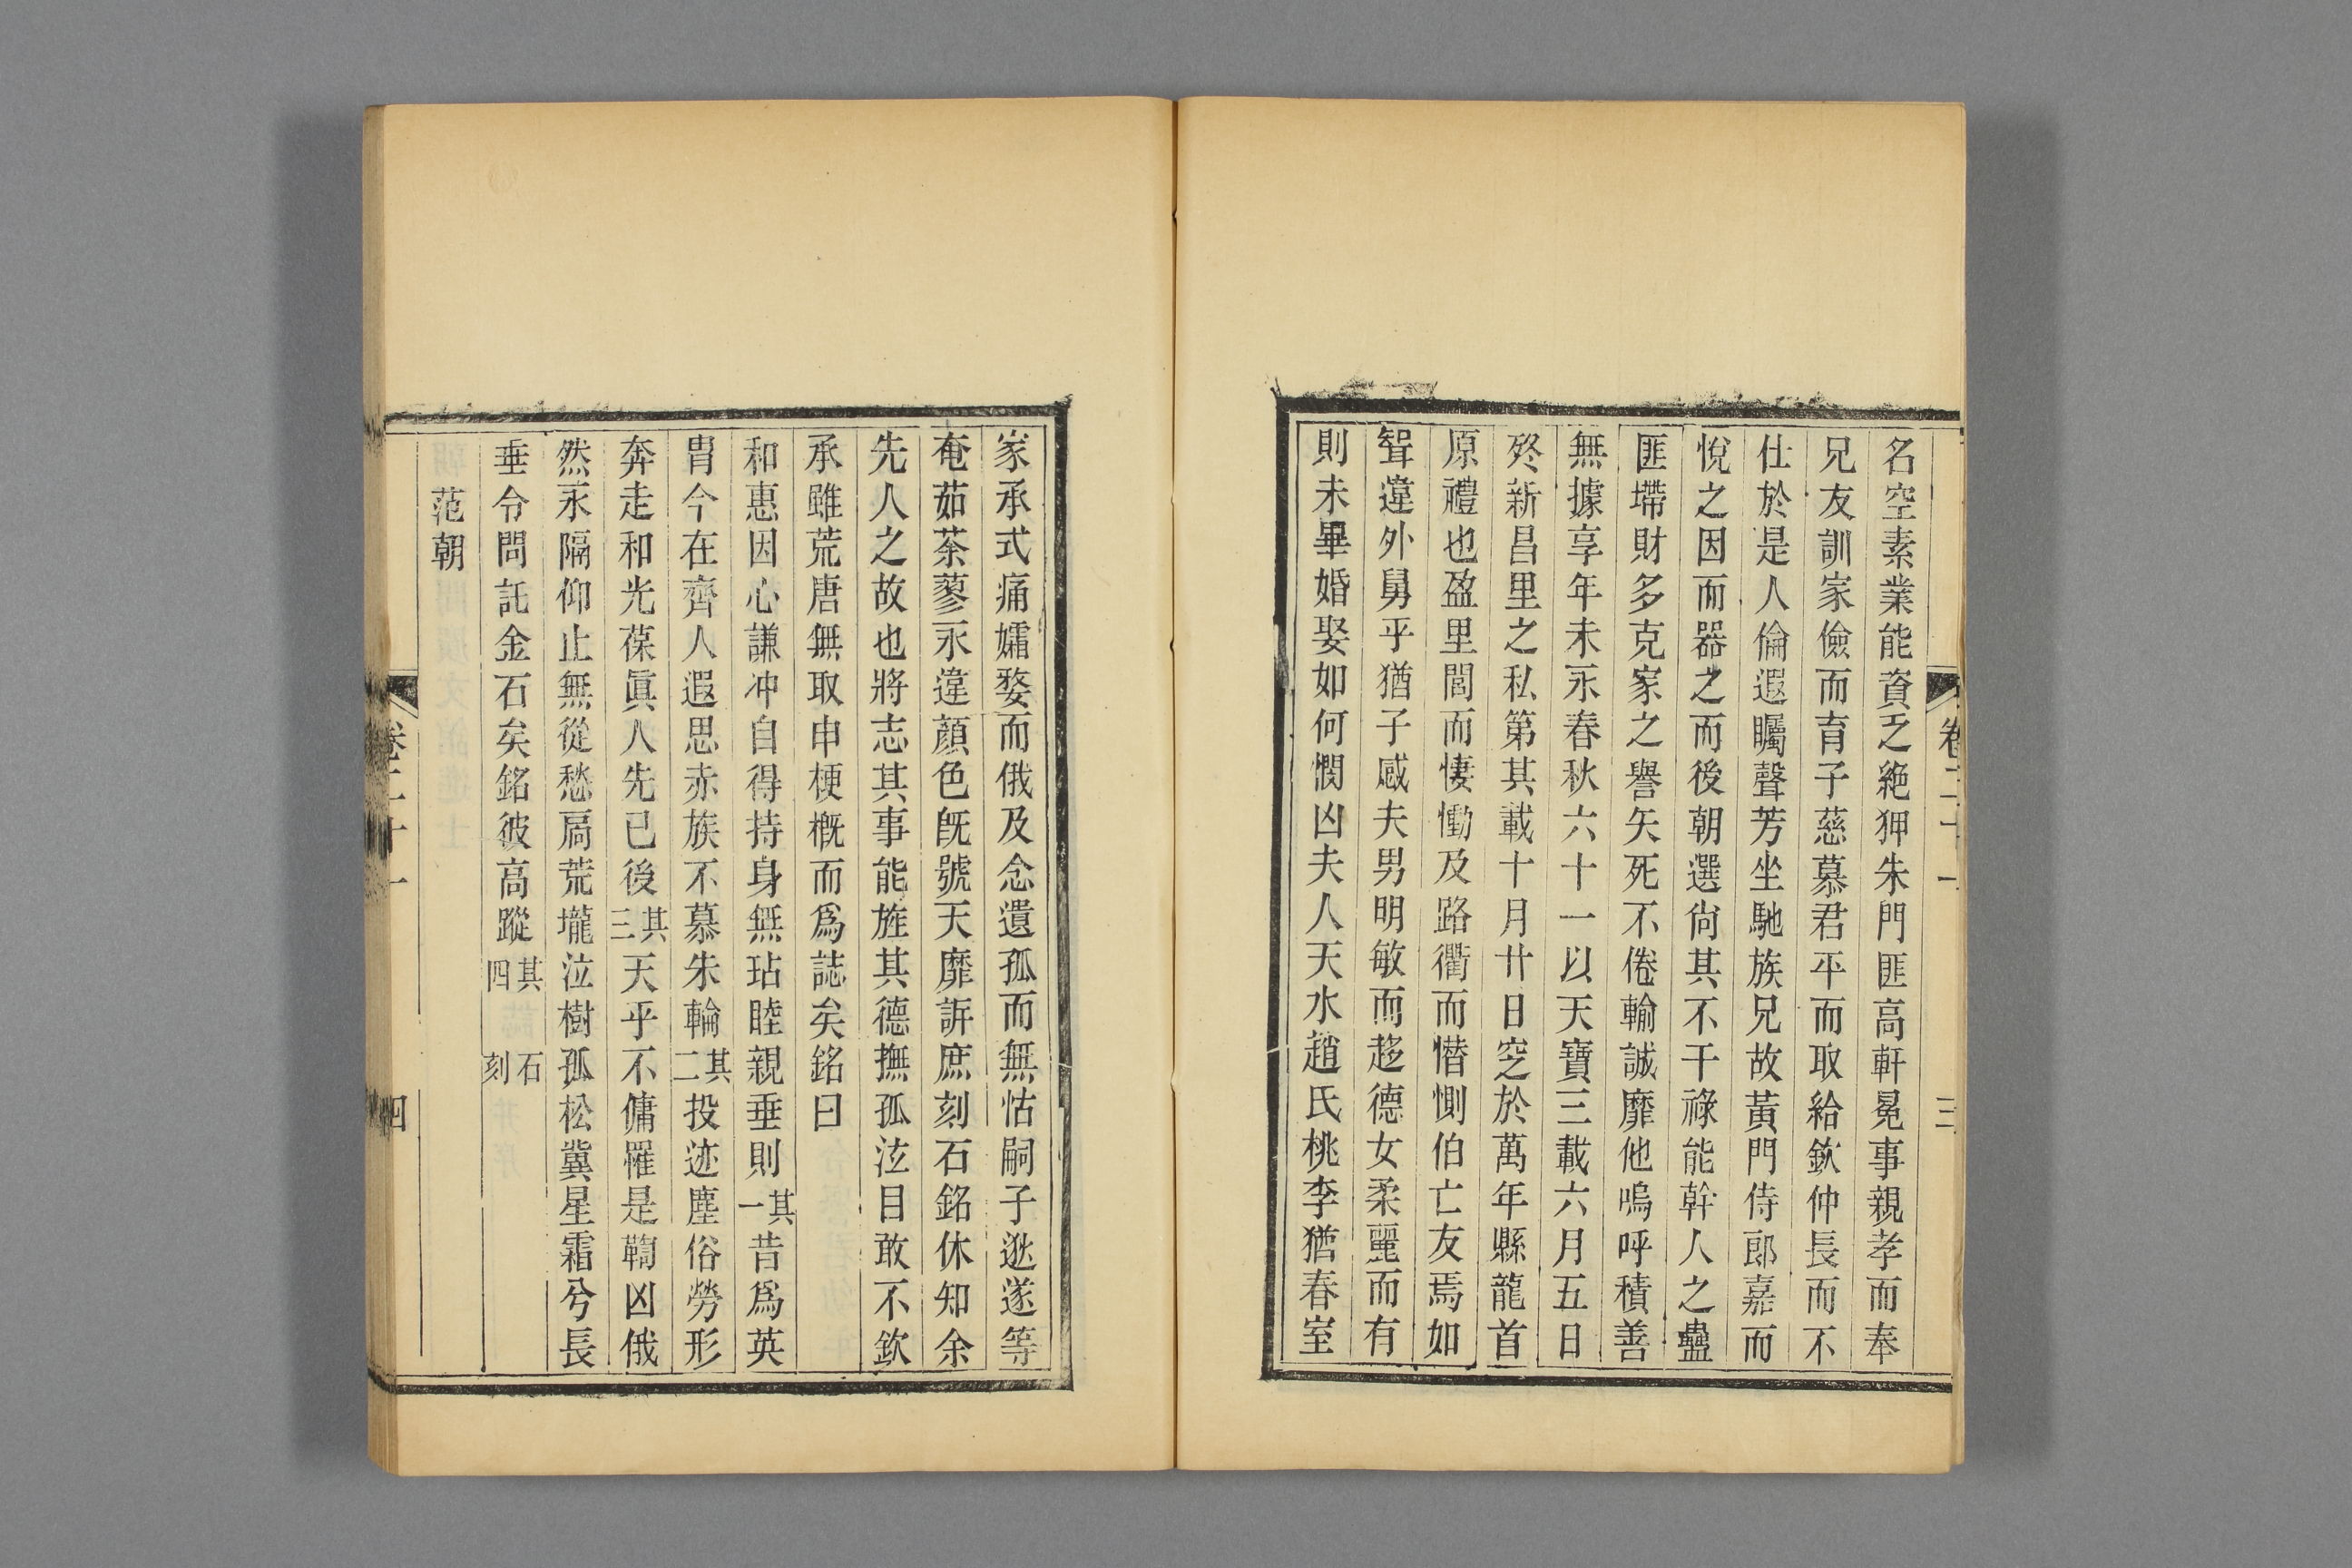 名空素業能資乏絶狎朱門匪高軒冕事親孝而奉
兄友訓家儉而育子慈慕君平而取給欽仲長而不
仕於是人倫遐矚聲芳坐馳族兄故黃門侍郎嘉而
悅之因而器之而後朝選尙其不干祿能幹人之蠱
匪墆財多克家之譽矢死不倦輸誠靡他嗚呼積善
無據享年未永春秋六十一以天寶三載六月五日
終新昌里之私第其載十月廿日窆於萬年縣龍首
原禮也盈里閭而悽慟及路衢而憯惻伯亡友焉如
聟違外舅乎猶子感夫男明敏而趍德女柔麗而有
則未畢婚娶如何憫凶夫人天水趙氏桃李猶春室
卷二十一
三
家承式痛孀婺而俄及念遺孤而無怙嗣子逖遂等
奄茹荼蓼永違顔色旣號天靡訴庶刻石銘休知余
先人之故也將志其事能旌其德撫孤泫目敢不欽
承雖荒唐無取申梗概而爲誌矣銘曰
和惠因心謙冲自得持身無玷睦親垂則其一昔爲英
冑今在齊人遐思赤族不慕朱輪其二投迹塵俗勞形
奔走和光葆眞人先已後其三天乎不傭罹是鞫凶俄
然永隔仰止無從愁扃荒壠泣樹孤松冀星霜兮長
垂令問託金石矣銘彼高蹤其四　石刻
范朝
卷二十一
四